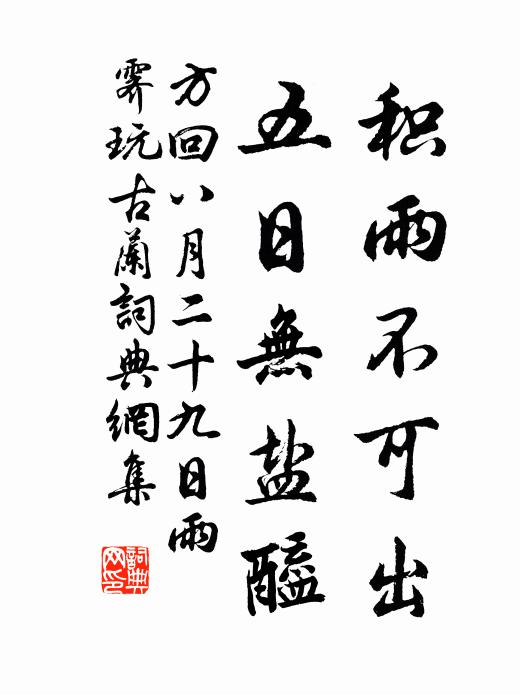 积雨不可出
五日無盐醯
方回八月二十九日雨
霁玩古蘭詞典網集
詞典
网印